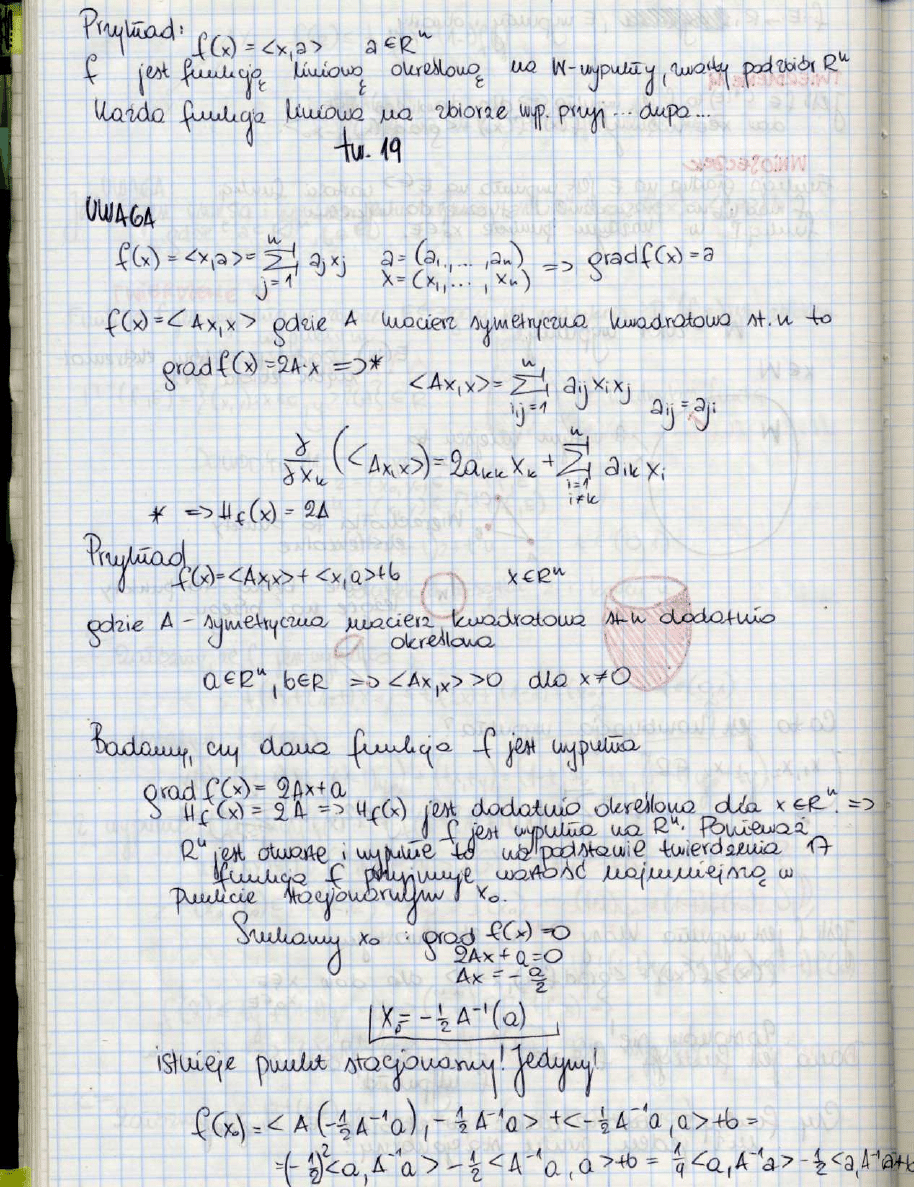 Przykład: f(x) = <x,a> a ∈ Rⁿ
f jest funkcję liniową określoną na W-wypukły, zwarty podzbiór Rⁿ
Każda funkcja liniowa na zbiorze wyp. przyj... dupa...
tw. 19
UWAGA
f(x) = <x,a> = ∑_{j=1}^{n} a_j x_j a = (a₁, ..., aₙ) x = (x₁, ..., xₙ) => grad f(x) = a
f(x) = <Ax,x> gdzie A macierz symetryczna kwadratowa st. n to
grad f(x) = 2A·x => *
<Ax,x> = ∑_{i,j=1}^{n} a_ij x_i x_j a_ij = a_ji
∂/∂x_k (<Ax,x>) = 2a_kk x_k + ∑_{i=1, i≠k}^{n} a_ik x_i
* => H_f(x) = 2A
Przykład
f(x) = <Ax,x> + <x,a> + b x ∈ Rⁿ
gdzie A - symetryczna macierz kwadratowa st. n dodatnio
określona
a ∈ Rⁿ, b ∈ R => <Ax,x> > 0 dla x ≠ 0
Badamy, czy dana funkcja f jest wypukła
grad f(x) = 2Ax + a
H_f(x) = 2A => H_f(x) jest dodatnio określona dla x ∈ Rⁿ. =>
f jest wypukła na Rⁿ. Ponieważ
Rⁿ jest otwarte i wypukłe to na podstawie twierdzenia 17
funkcja f przyjmuje wartość najmniejszą w
punkcie stacjonarnym x₀.
Szukamy x₀ : grad f(x) = 0
2Ax + a = 0
Ax = -a/2
x₀ = -½ A⁻¹(a)
istnieje punkt stacjonarny! Jedyny!
f(x₀) = <A(-½A⁻¹a), -½A⁻¹a> + <-½A⁻¹a, a> + b =
= (-½)² <a, A⁻¹a> - ½ <A⁻¹a, a> + b = ¼ <a, A⁻¹a> - ½ <a, A⁻¹a> + b